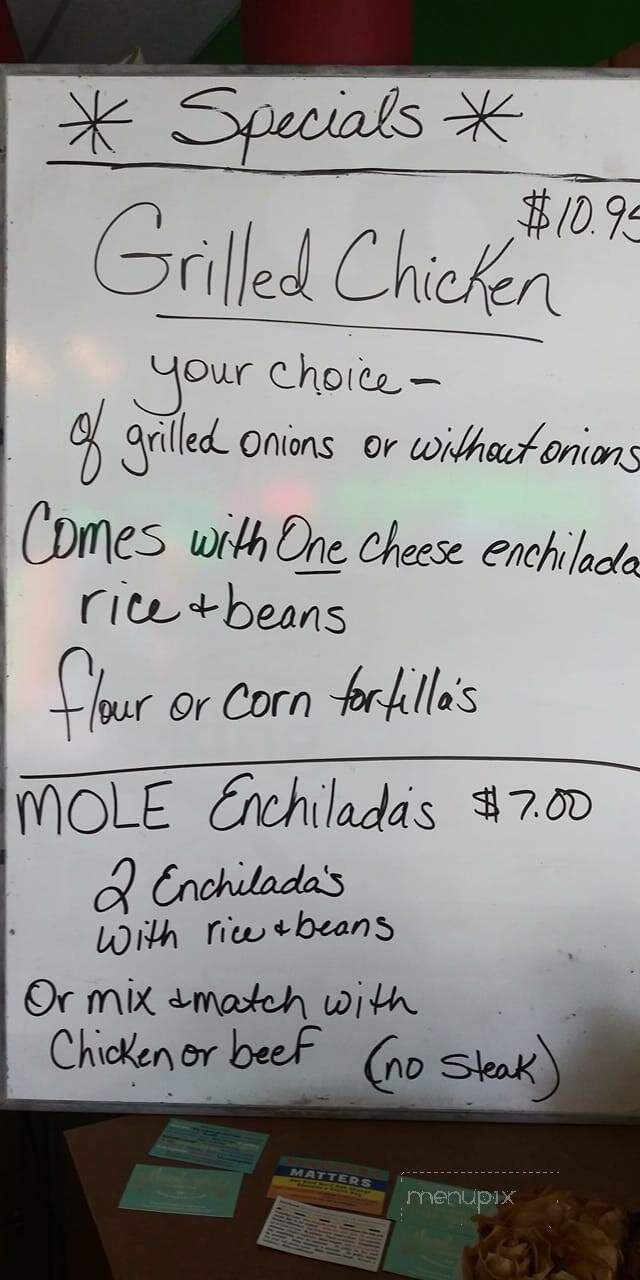 * Specials *
$10.95
Grilled Chicken
your choice-
of grilled onions or without onions
Comes with One cheese enchilada
rice + beans
flour or corn tortilla's
MOLE Enchilada's $7.00
2 Enchilada's
with rice + beans
Or mix + match with
Chicken or beef (no steak)
MATTERS
menupix